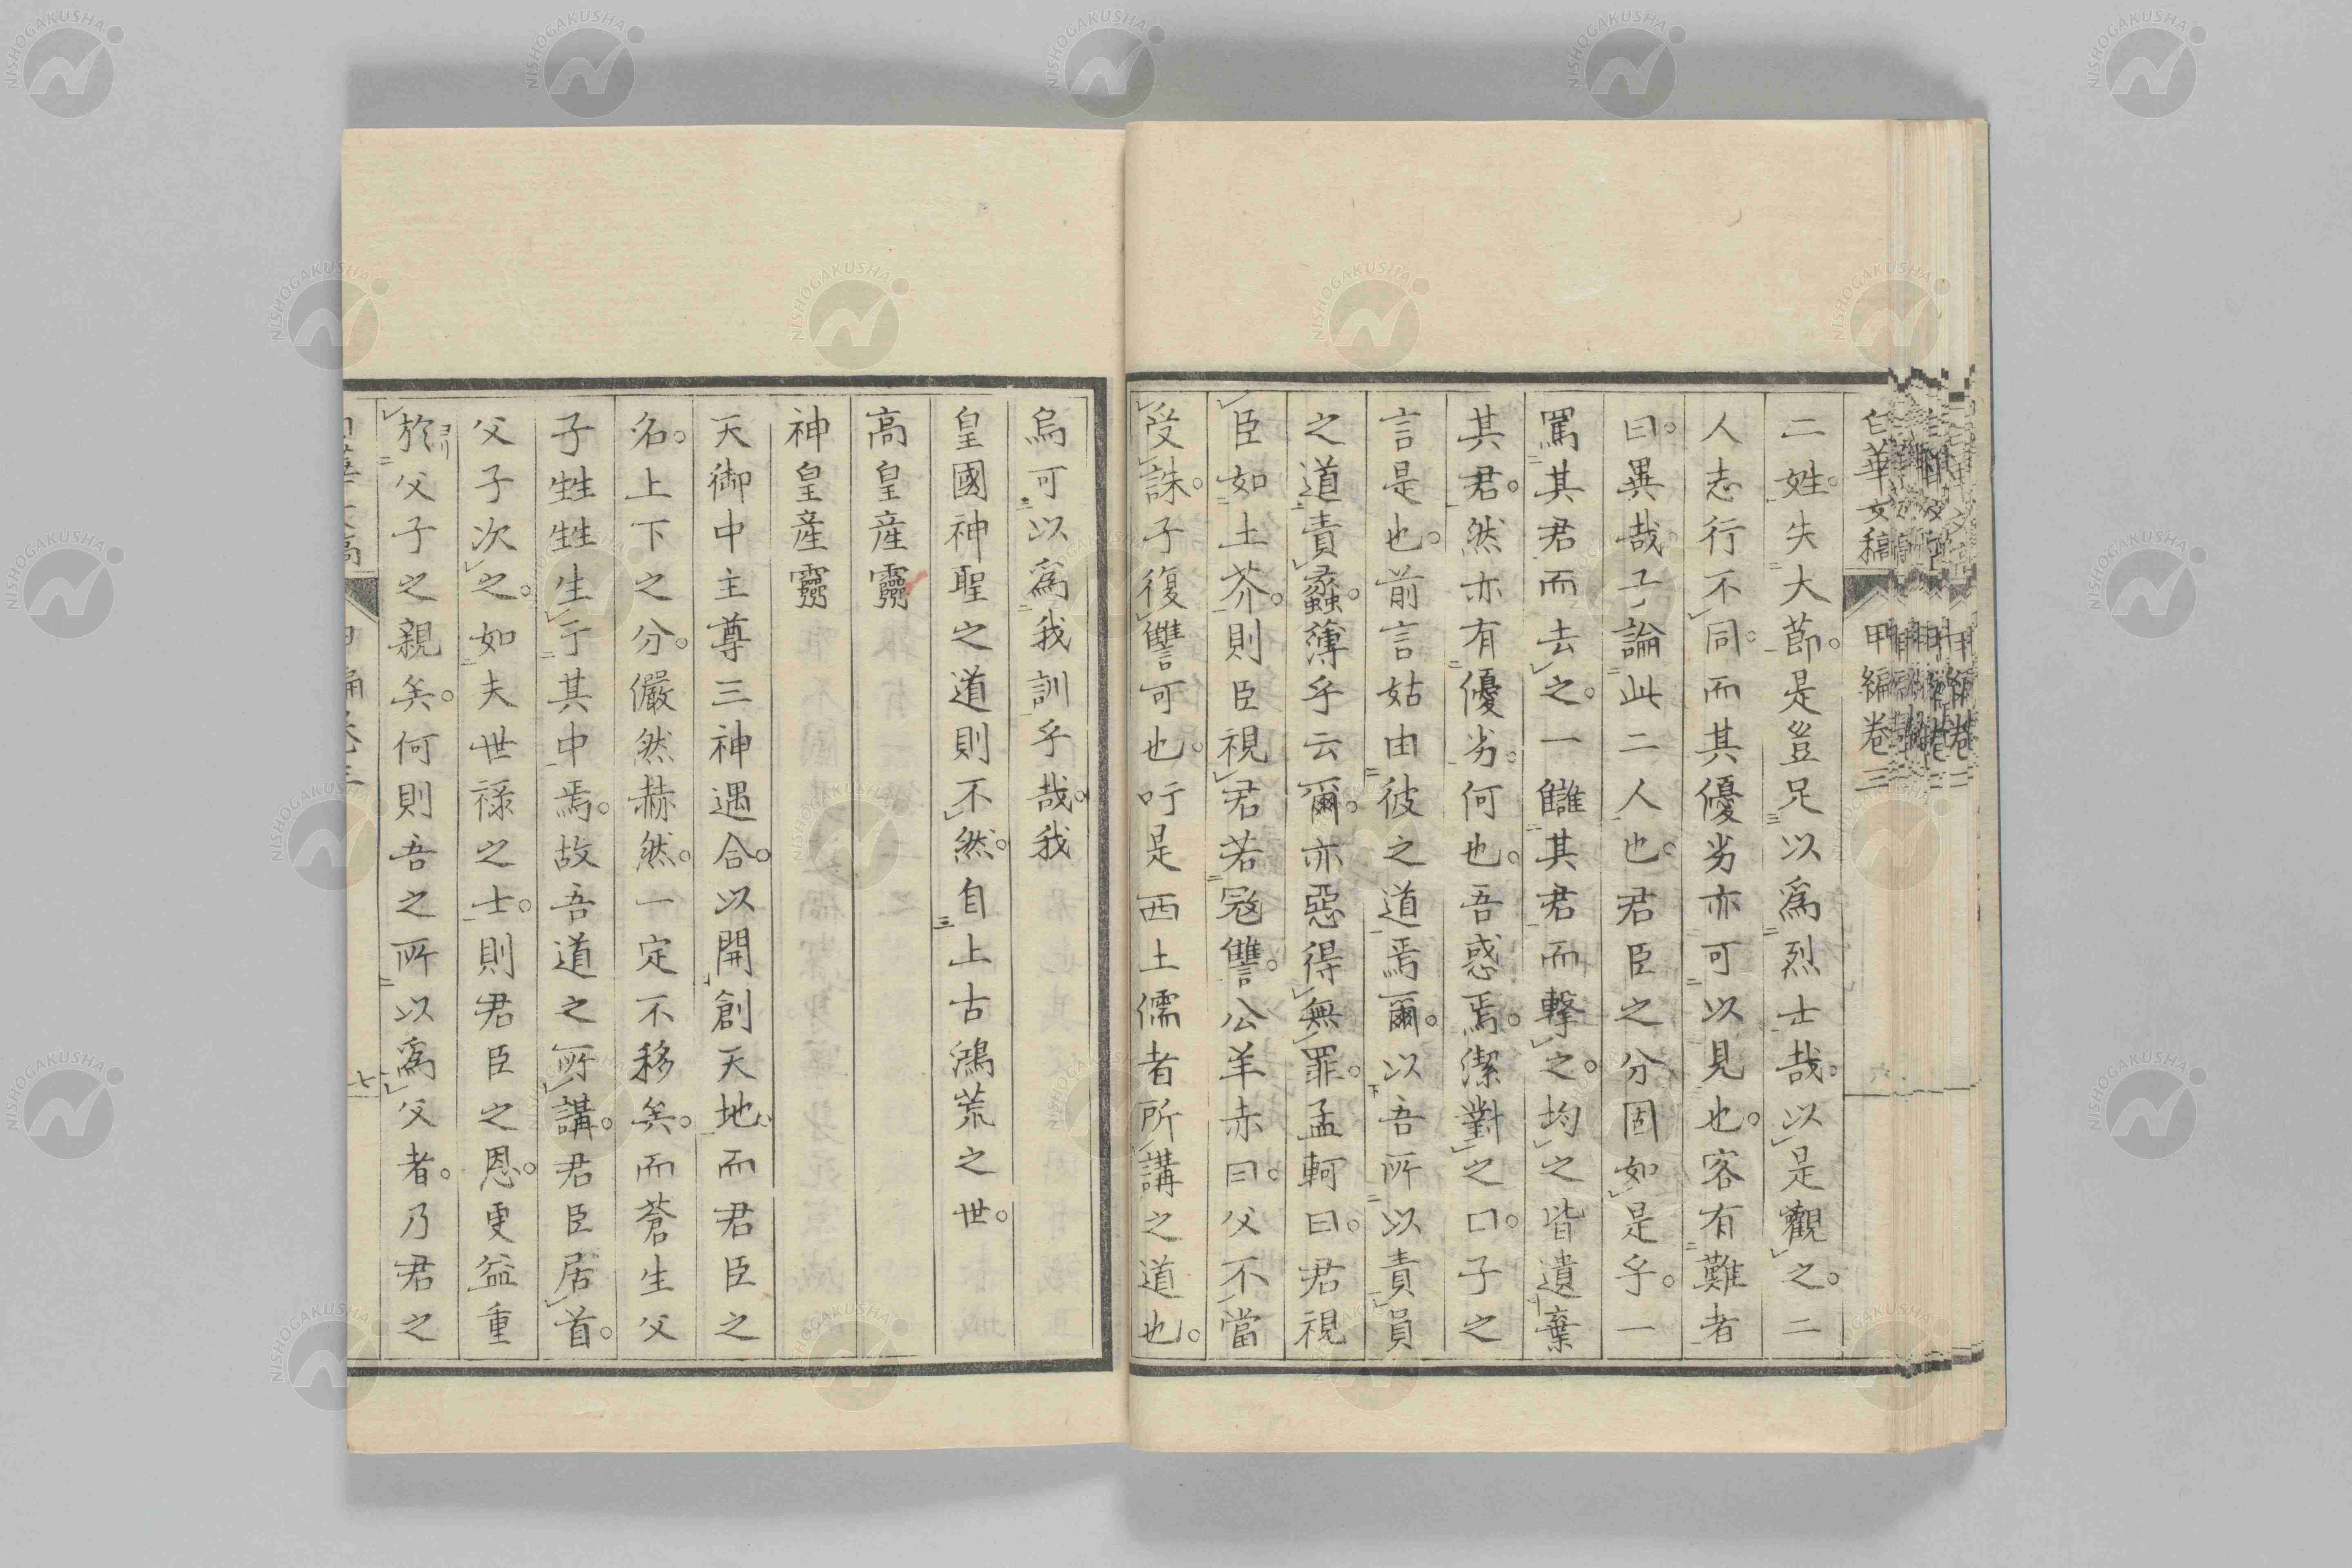 白華文稿 甲編卷三
二姓。失大節。是豈足以爲烈士哉。以是觀之。二
人志行不同。而其優劣亦可以見也。客有難者
曰。異哉。子論此二人也。君臣之分固如是乎。一
罵其君而去之。一讎其君而撃之。均之皆遺棄
其君。然亦有優劣。何也。吾惑焉。潔對之。曰。子之
言是也。前言姑由彼之道焉爾。以吾所以責員
之道責蠡。薄乎云爾。亦惡得無罪。孟軻曰。君視
臣如土芥。則臣視君若寇讐。公羊赤曰。父不當
受誅。子復讐可也。吁是西土儒者所講之道也。
烏可以爲我訓乎哉。我
皇國神聖之道則不然。自上古鴻荒之世。
高皇産靈
神皇産靈
天御中主尊三神遇合。以開創天地。而君臣之
名。上下之分。儼然赫然。一定不移矣。而蒼生父
子甡甡生于其中焉。故吾道之所講。君臣居首。
父子次之。如夫世祿之士。則君臣之恩。更益重
於父子之親矣。何則吾之所以爲父者。乃君之
七
NISHOGAKUSHA